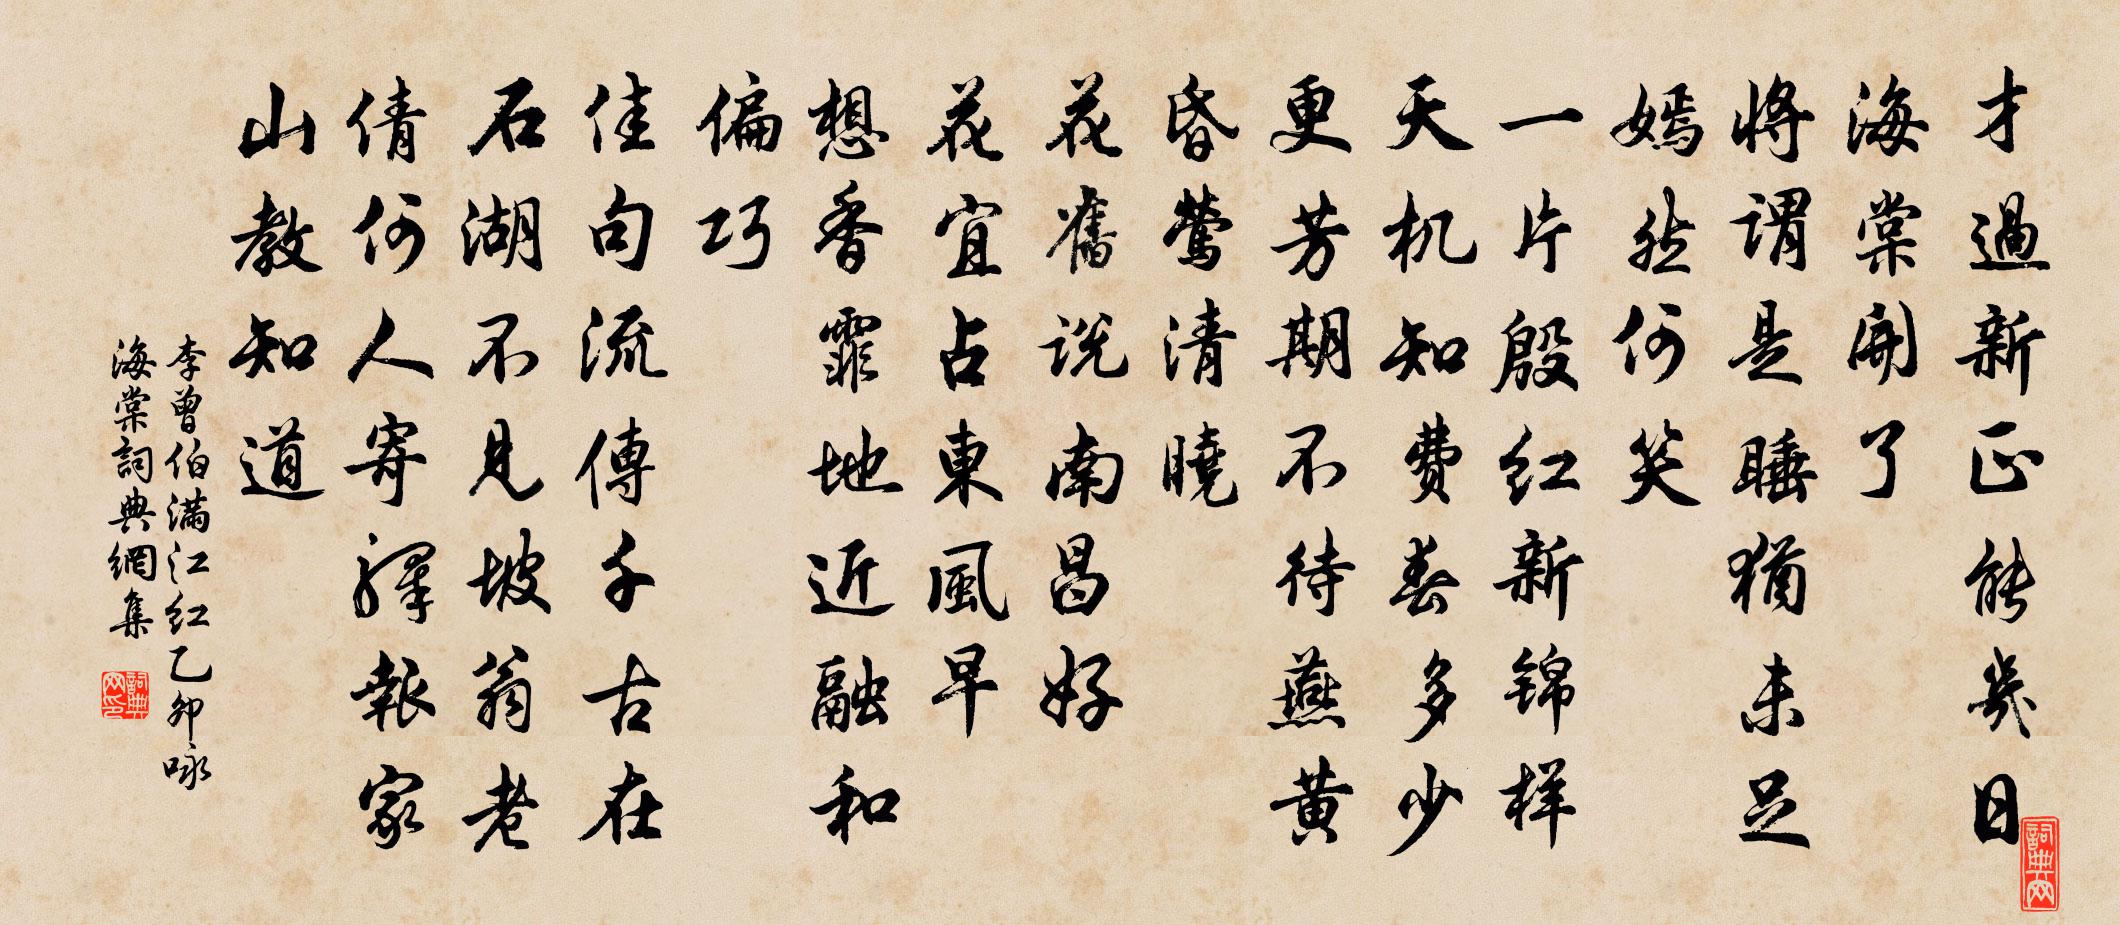 才過新正能幾日
海棠開了
將謂是睡猶未足
嫣然何笑
一片殷红新锦样
天机知費春多少
更芳期不待燕黄
昏鶯清曉
花舊説南昌好
花宜占東風早
想香霏地近融和
偏巧
佳句流傳千古在
石湖不見坡翁老
倩何人寄驛報家
山教知道
李曾伯满江红乙卯咏
海棠詞典網集
詞典网印
詞典网